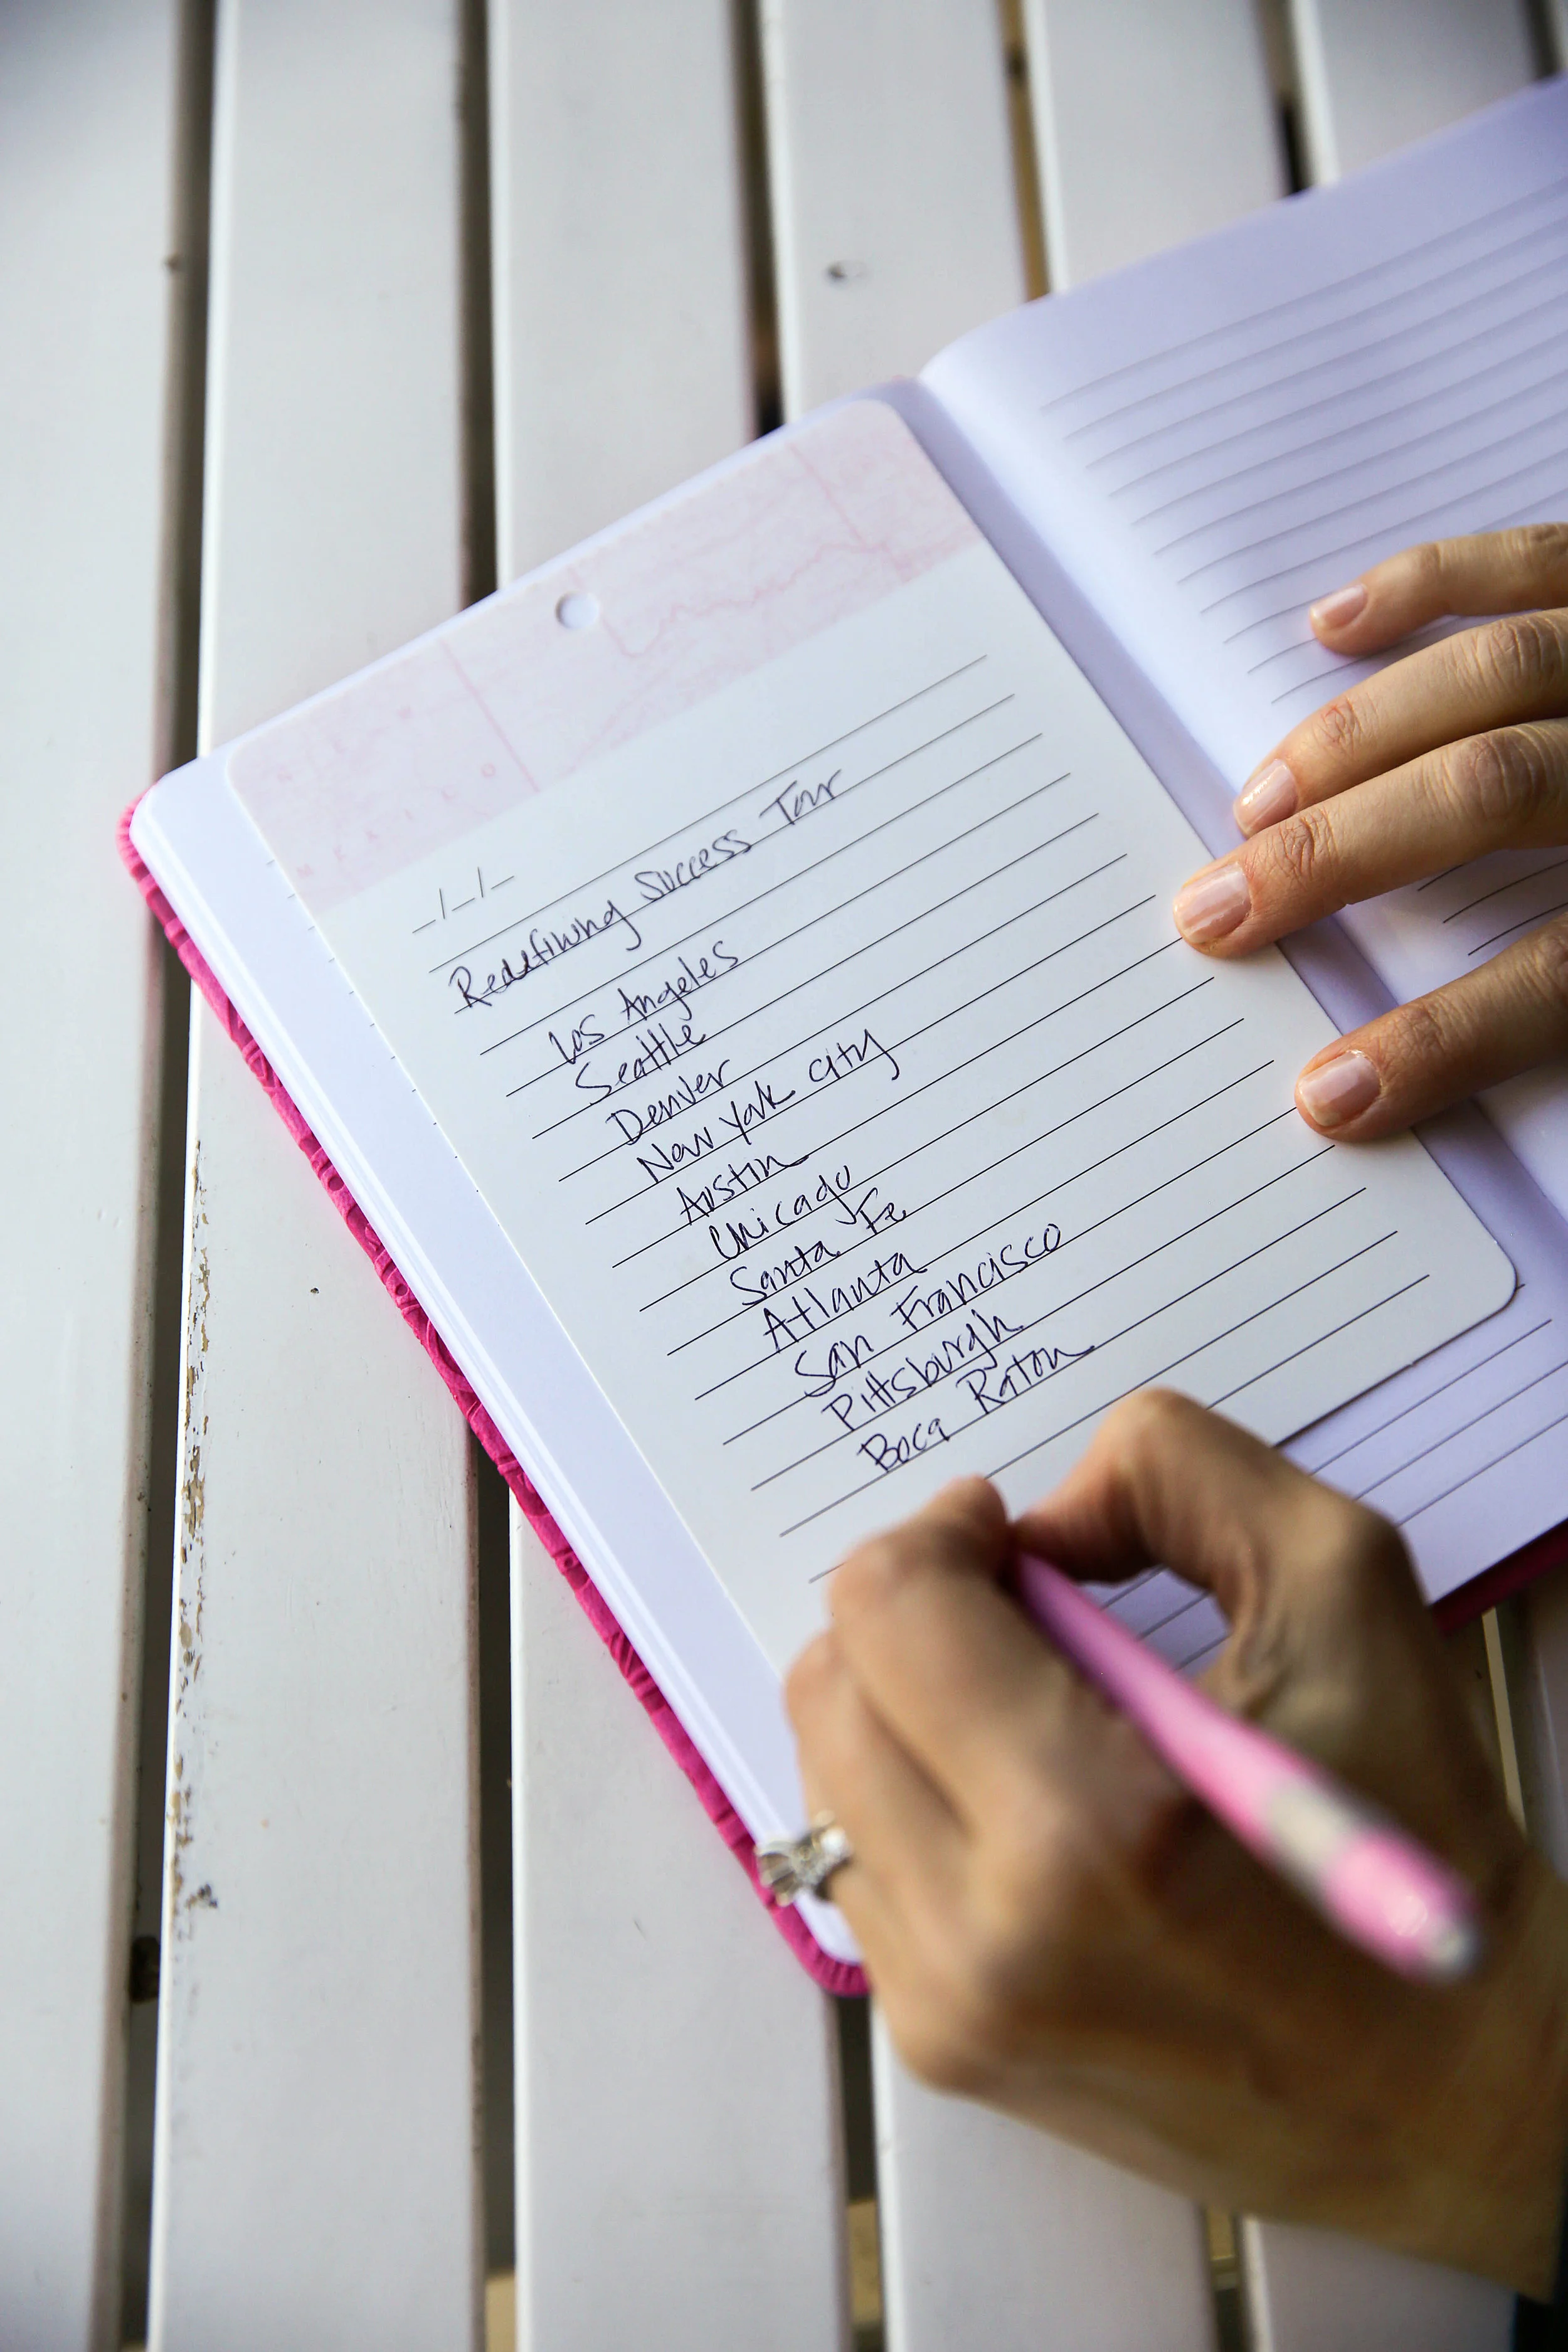 _/_/_
Redefining Success Tour
Los Angeles
Seattle
Denver
New York City
Austin
Chicago
Santa Fe
Atlanta
San Francisco
Pittsburgh
Boca Raton